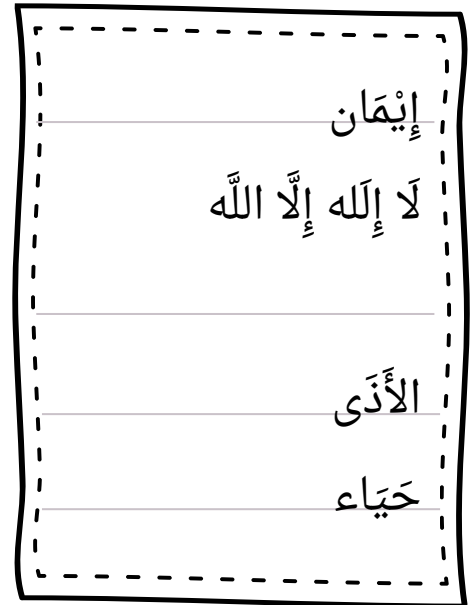 إِيْمَان
لَا إِلَله إِلَّا اللَّه
الأَذَى
حَيَاء